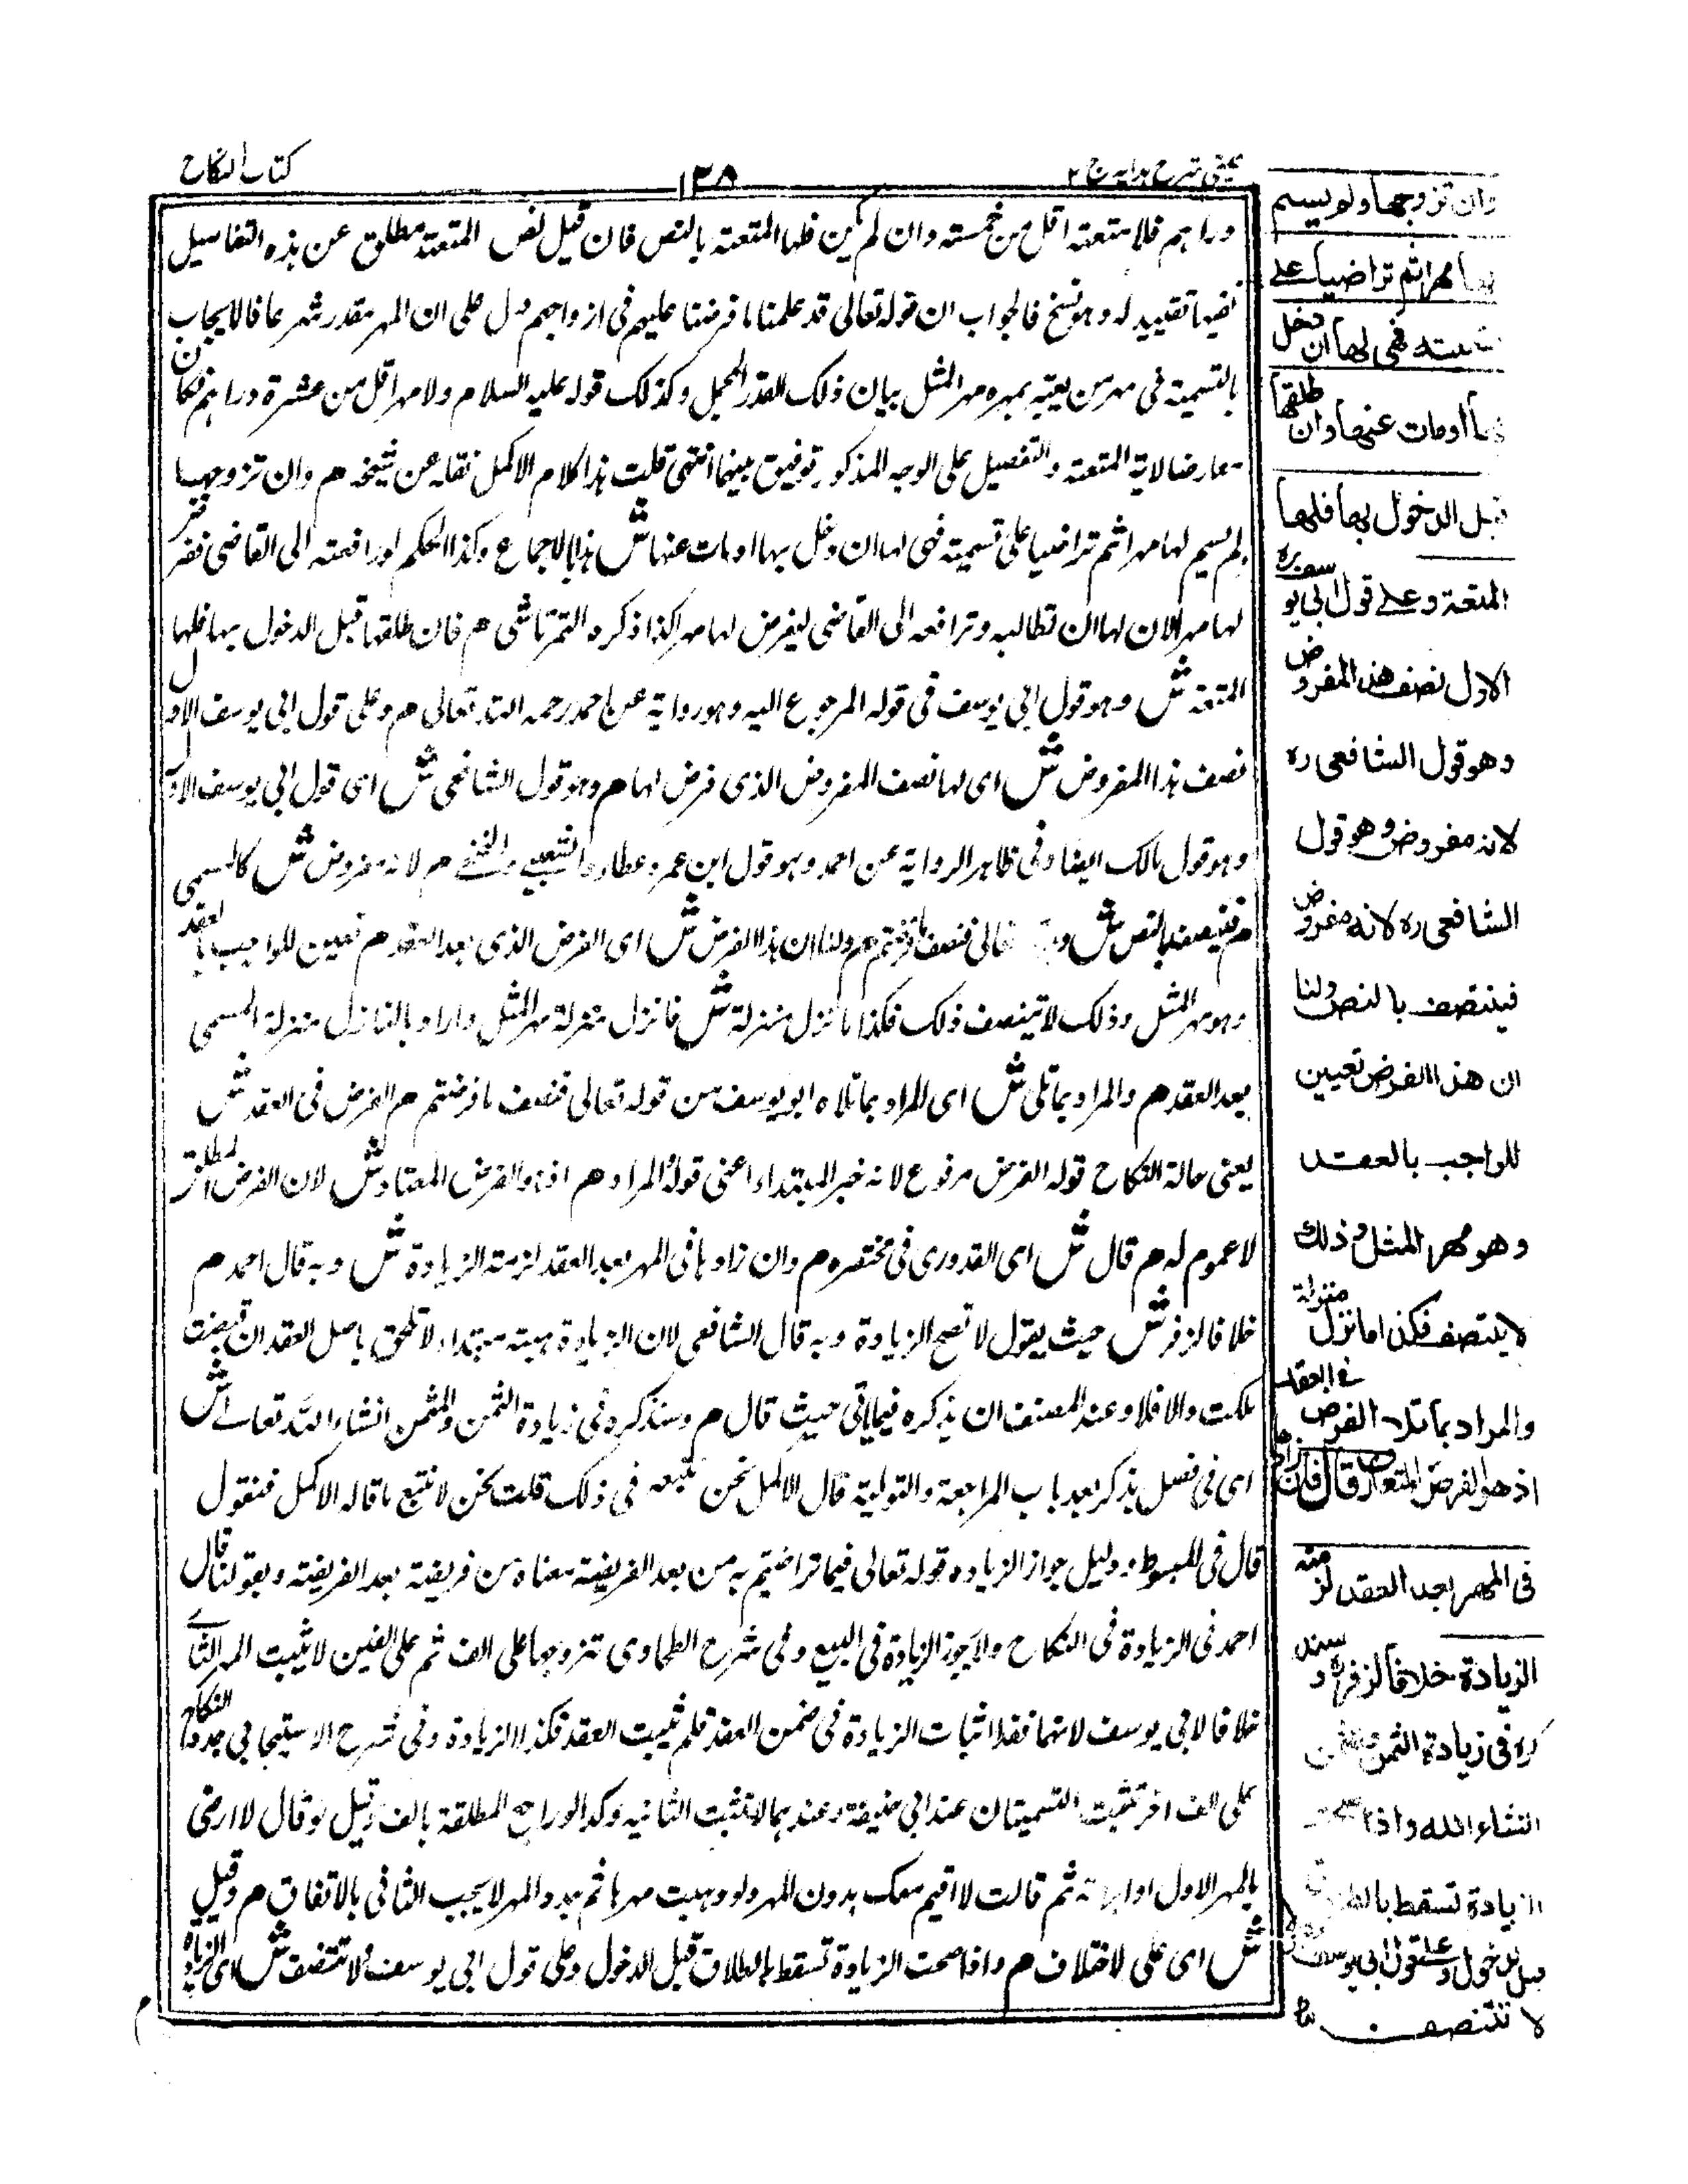 عينى شرح هدايه ج ٢
١٢٨
كتاب النكاح
دراهم فلا متعته اقل من خمسته وان لم يكن فلها المتعته بالنص فان قيل نص المتعته مطلق عن هذه التفاصيل
ففيها تقييد له وهو نسخ فالجواب ان قوله تعالى قد علمنا ما فرضنا عليهم فى ازواجهم دل على ان المهر مقدر شرعا فالايجاب
بالتسمية فى مهر من بمهره مهر المثل بيان ذلك القدر المجمل وكذلك قوله عليه السلام ولا مهر اقل من عشرة دراهم فكان
معارضا لاية المتعته والتفصيل على الوجه المذكور توفيق بينهما انتهى قلت هذا كلام الاكمل نقله عن شيخه م وان تزوجها
ولم يسم لها مهرا ثم تراضيا على تسميته فهى لها ان دخل بها او مات عنها ش هذا بالاجماع وكذا الحكم لو رافعته الى القاضى ففرض
لها مهرا لان لها ان تطالبه وترافعه الى القاضى ليفرض لها مهرا كذا ذكره التمرتاشى م فان طلقها قبل الدخول بها فلها
المتعته ش وهو قول ابي يوسف فى قوله المرجوع اليه وهو رواية عن احمد رحمه الله تعالى م وعلى قول ابي يوسف الاول
نصف هذا المفروض ش اى لها نصف المفروض الذى فرض لها م وهو قول الشافعى ش اى قول ابي يوسف الاول
وهو قول مالك ايضا وفى ظاهر الرواية عن احمد وهو قول ابن عمر وعطاء والشعبى والنخعى م لانه مفروض ش كالمسمى
م فيتنصف بالنص ش تعالى فنصف ما فرضتم م ولنا ان هذا الفرض ش اى الفرض الذى بعد العقد م تعيين للواجب بالعقد
وهو مهر المثل وذلك لا يتنصف ذلك فكذا ما نزل منزلة ش ما نزل منزلة مهر المثل واراد بالنازل منزلة المسمى
بعد العقد م والمراد بما تلى ش اى المراد بما تلاه ابو يوسف من قوله تعالى فنصف ما فرضتم م الفرض فى العقد ش
يعنى حالة النكاح قوله الفرض مرفوع لانه خبر المبتداء اعنى قوله المراد م اذ هو الفرض المعتاد ش لان الفرض المطلق
لا عموم له م قال ش اى القدورى فى مختصره م وان زادها فى المهر بعد العقد لزمته الزيادة ش وبه قال احمد م
خلافا لزفر ش حيث يقول لا تصح الزيادة وبه قال الشافعى لان الزيادة هبته مبتداء لا تلحق باصل العقد ان قبضت
ملكت والا فلا وعند المصنف ان يذكره فيما ياتى حيث قال م وسنذكره فى زيادة الثمن والمثمن انشاء الله تعالے ش
اى فى فصل يذكر بعد باب المرابحة والتولية قال الاكمل نحن نتبعه فى ذلك قلت نحن لا نتبع ما قاله الاكمل فنقول
قال فى المبسوط ودليل جواز الزيادة قوله تعالى فيما تراضيتم به من بعد الفريضته معناه من فريضته بعد الفريضته وبقولنا قال
احمد فى الزيادة فى النكاح ولا يجوز الزيادة فى البيع وفى شرح الطحاوى تزوجها على الف ثم على الفين لا يثبت المهر الثانے
خلافا لابي يوسف لانهما قصدا اثبات الزيادة فى ضمن العقد فلم يثبت العقد فكذا الزيادة وفى شرح الاسبيجابي جدد النكاح
على الف اخر تثبت التسميتان عند ابي حنيفة وعندهما لا تثبت الثانيه وكذا لو راجع المطلقة بالف وقيل لو قال لا ارضى
بالمهر الاول او ثم قالت لا اقيم معك بدون المهر ولو وهبت مهرها ثم جدد المهر لا يجب الثانى بالاتفاق م وقيل
ش اى على الاختلاف م واذا صحت الزيادة تسقط بالطلاق قبل الدخول وعلى قول ابي يوسف لا تتنصف ش اى الزيادة
وان تزوجها ولو يسم
لها مهرا ثم تراضيا علے
تسميته فهى لها ان دخل
بها او مات عنها وان طلقها
قبل الدخول بها فلها
المتعة وعلے قول ابي يوسف ره
الاول نصف هذا المفروض
وهو قول الشافعى ره
لانه مفروض وهو قول
الشافعى ره لانه مفروض
فيتنصف بالنص ولنا
ان هذا الفرض تعيين
للواجب بالعقد
وهو مهر المثل وذلك
لا يتنصف فكذا ما نزل منزلة
والمراد بما تلا الفرض فے العقد
اذ هو الفرض المتعارف قال فان زادها
فى المهر بعد العقد لزمته
الزيادة خلافا لزفر ره وسنذ
كره فى زيادة الثمن
انشاء الله واذا صحت
الزيادة تسقط بالطلاق
قبل الدخول وعلے قول ابي يوسف
لا تتنصف